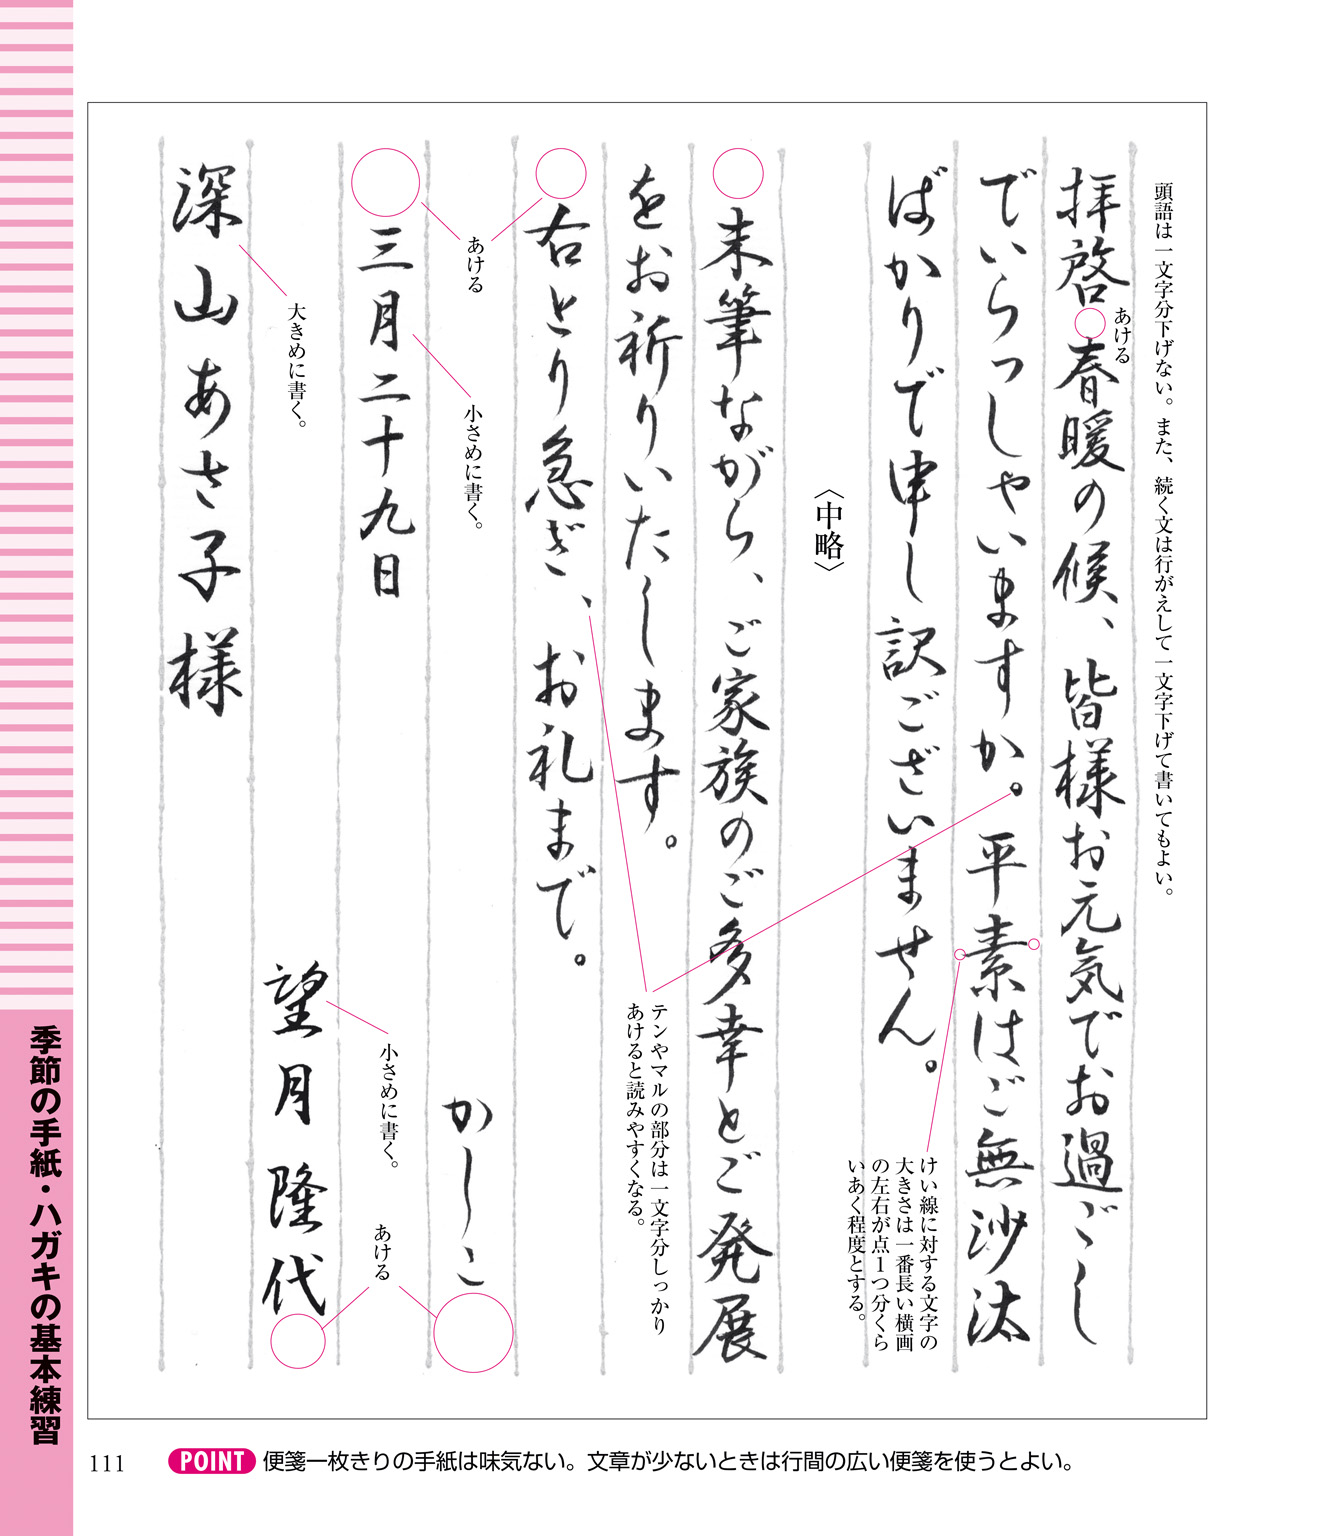 頭語は一文字分下げない。また、続く文は行がえして一文字下げて書いてもよい。
拝啓 春暖の候、皆様お元気でお過ごし
あける
でいらっしゃいますか。平素はご無沙汰
ばかりで申し訳ございません。
けい線に対する文字の
大きさは一番長い横画
の左右が点1つ分くら
いあく程度とする。
〈中略〉
末筆ながら、ご家族のご多幸とご発展
をお祈りいたします。
テンやマルの部分は一文字分しっかり
あけると読みやすくなる。
右とり急ぎ、お礼まで。
あける
かしこ
小さめに書く。
三月二十九日
小さめに書く。
あける
望月隆代
大きめに書く。
深山あさ子様
季節の手紙・ハガキの基本練習
111
POINT 便箋一枚きりの手紙は味気ない。文章が少ないときは行間の広い便箋を使うとよい。